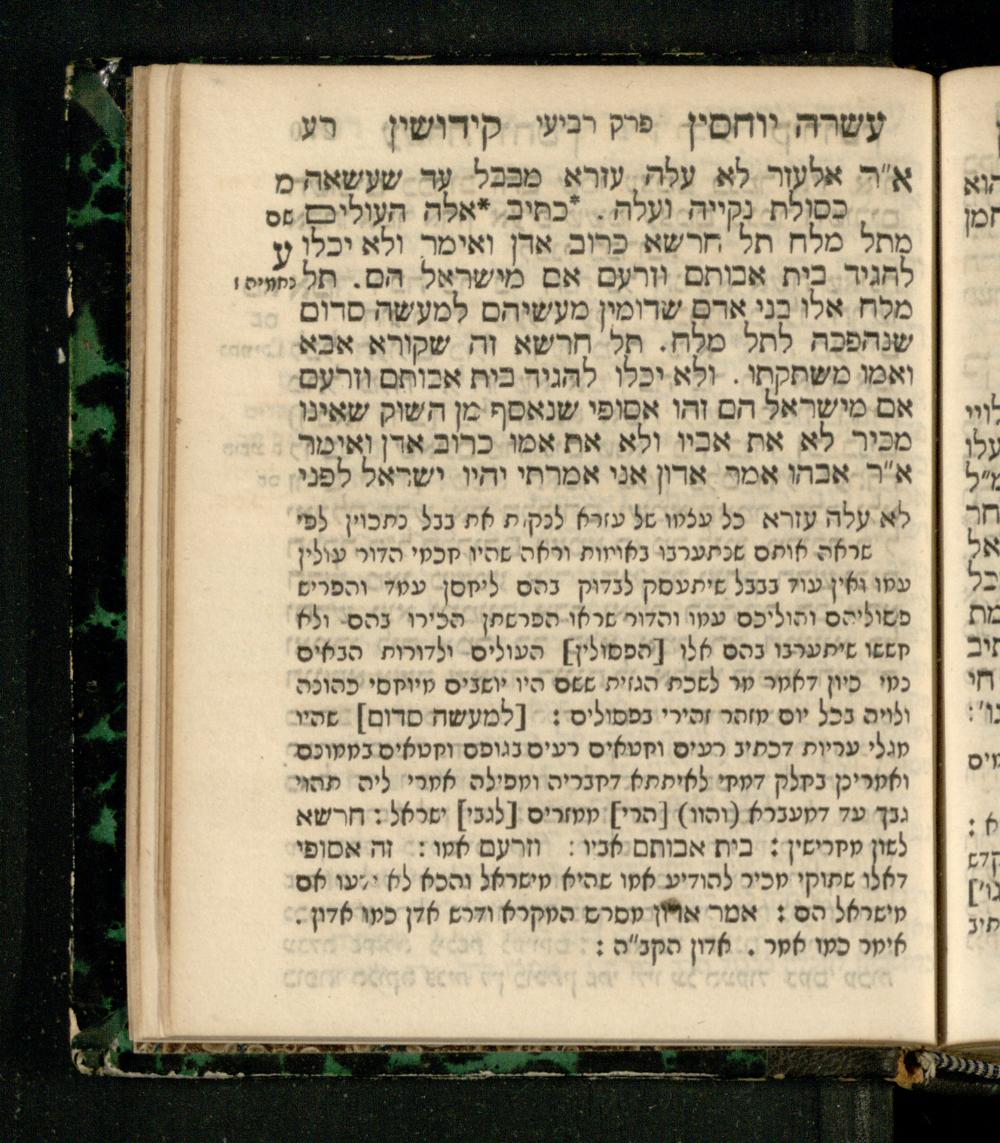 עשרה יוחסין פרק רביעי קידושין רע
א"ר אלעזר לא עלה עזרא מבבל עד שעשאה מ
כסולת נקייה ועלה. *כתיב *אלה העולים שם
מתל מלח תל חרשא כרוב אדן ואימר ולא יכלו ע
להגיד בית אבותם וזרעם אם מישראל הם. תל נחמיה ז
מלח אלו בני אדם שדומין מעשיהם למעשה סדום
שנהפכה לתל מלח. תל חרשא זה שקורא אבא
ואמו משתקתו. ולא יכלו להגיד בית אבותם וזרעם
אם מישראל הם זהו אסופי שנאסף מן השוק שאינו
מכיר לא את אביו ולא את אמו כרוב אדן ואימר
א"ר אבהו אמר אדון אני אמרתי יהיו ישראל לפני
לא עלה עזרא כל עלמו של עזרא לנקות את בבל נתכוין לפי
שראה אותם שנתערבו באומות וראה שהיו חכמי הדור עולין
עמו ואין עוד בבבל שיתעסק לבדוק בהם ליחסן עמד והפריש
פסוליהם והוליכם עמו והדור שראו הפרשתן הכירו בהם ולא
חששו שיתערבו בהם אלו [הפסולין] העולים ולדורות הבאים
נמי כיון דאמר מר לשכת הגזית ששם היו יושבים מיוחסי כהונה
ולויה בכל יום מזהר זהירי בפסולים : [למעשה סדום] שהיו
מגלי עריות דכתיב רעים וחטאים רעים בגופם וחטאים בממונם
ואמרינן בחלק דמחי לאיתתא דחבריה ומפילה אמרי ליה תהוי
גבך עד דמעברא (והוו) [הרי] ממזרים [לגבי] ישראל : חרשא
לשון מחרישין : בית אבותם אביו : וזרעם אמו : זה אסופי
דאלו שתוקי מכיר להודיע אמו שהיא מישראל והכא לא ידעו אם
מישראל הם : אמר אדון מסרס המקרא ודרש אדן כמו אדון .
אימר כמו אמר . אדון הקב"ה :